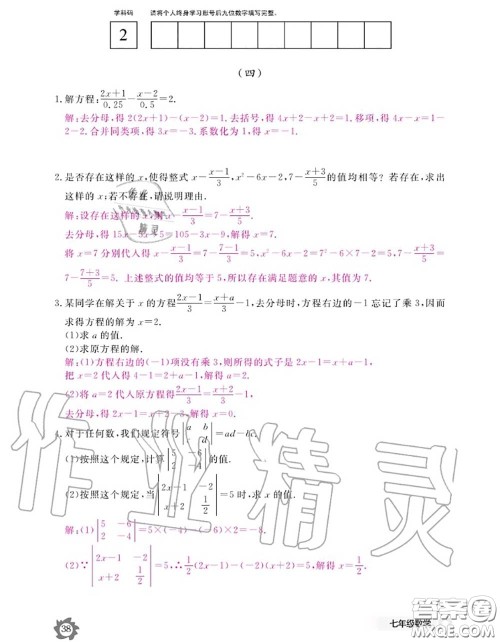 学科码 请将个人终身学习形号后九位数字填写完整。
2
(四)
1.解方程:(2x+1)/0.25-(x-2)/0.5=2.
解:去分母,得2(2x+1)-(x-2)=1.去括号,得4x+2-x+2=1.移项,得4x-x=1-
2-2.合并同类项,得3x=-3.系数化为1,得x=-1.
2.是否存在这样的x,使得整式x-(x-1)/3,x²-6x-2,7-(x+3)/5的值均相等?若存在,求出
这样的x;若不存在,请说明理由.
解:设存在这样的x,则x-(x-1)/3=7-(x+3)/5.
去分母,得15x-5x+5=105-3x-9,解得x=7.
将x=7分别代入得x-(x-1)/3=7-(7-1)/3=5,x²-6x-2=7²-6×7-2=5,7-(x+3)/5=
7-(7+3)/5=5. 上述整式的值均等于5,所以存在满足题意的x,其值为7.
3.某同学在解关于x的方程(2x-1)/3=(x+a)/3-1,去分母时,方程右边的-1忘记了乘3,因而
求得方程的解为x=2.
(1)求a的值.
(2)求原方程的解.
解:(1)方程右边的(-1)项没有乘3,则所得的式子是2x-1=x+a-1,
把x=2代入得4-1=2+a-1,解得a=2.
(2)将a=2代入原方程得(2x-1)/3=(x+2)/3-1,
去分母,得2x-1=x+2-3,解得x=0.
4.对于任何数,我们规定符号|a b; c d|=ad-bc.
(1)按照这个规定,计算|5 -6; 2 -4|的值.
(2)按照这个规定,当|2x-1 -2; x+2 1/2|=5时,求x的值.
解:(1)|5 -6; 2 -4|=5×(-4)-(-6)×2=-8.
(2)∵|2x-1 -2; x+2 1/2|=5,∴1/2(2x-1)-(-2)(x+2)=5,解得x=1/2.
38
七年级数学
作业精灵
答案圈
MXQE.COM